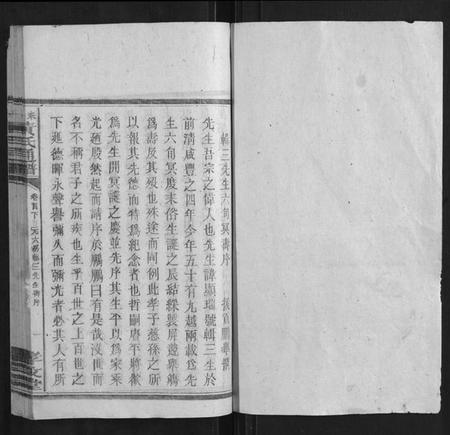 輯三先生六旬冥壽序
先生吾宗之偉人也先生諱顯瑞號輯三生於
前清咸豐之四年今年五十有九越兩載為先
生六旬冥度末俗生誕之辰結綵製屏遊樂觴
為壽反其歿也殊途而同例此孝子慈孫之所
以報其先德而特為紀念者也哲嗣唐平將歡
為先生開冥誕之慶並先序其生平以為家乘
光廼殷然起而請序於鵬鵬曰有是哉沒世而
名不稱君子之所疾也生乎百世之上百世之
下延德暉永聲譽彌久而彌光者必其人有所
黃氏通譜
卷首下 六旬輯三先生壽序
一